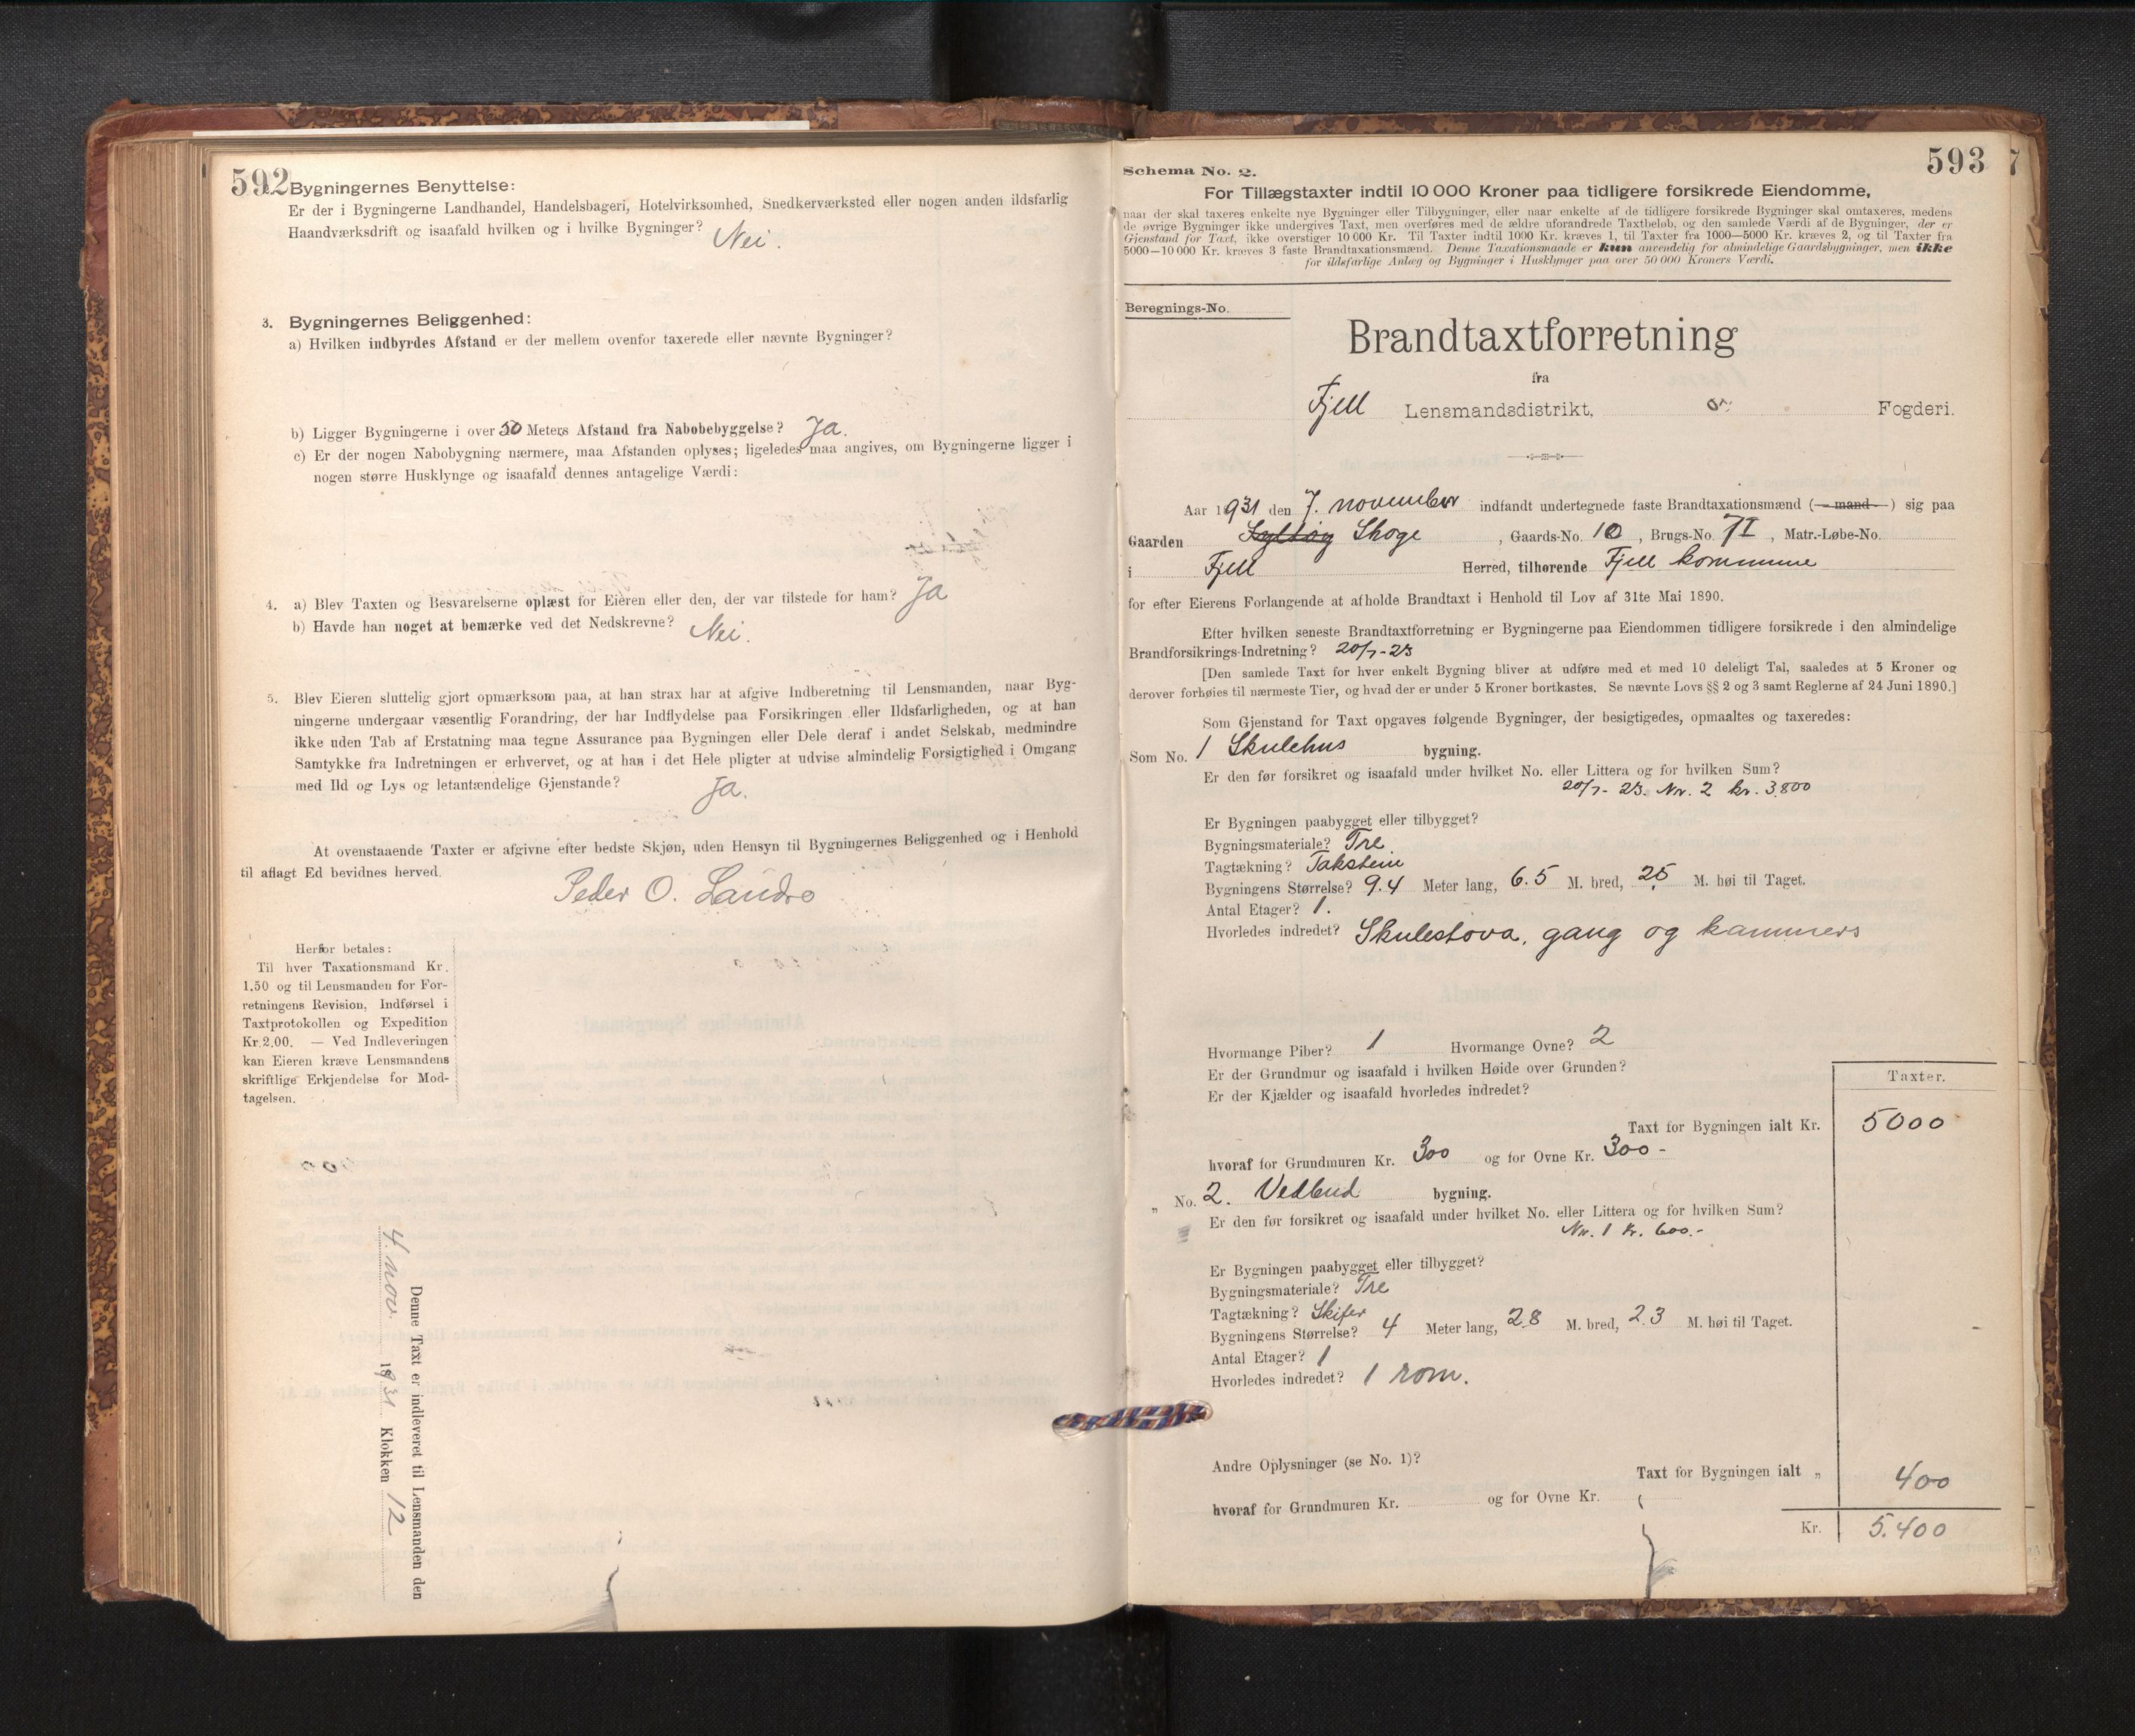 592
Bygningernes Benyttelse:
Er der i Bygningerne Landhandel, Handelsbageri, Hotelvirksomhed, Snedkerværksted eller nogen anden ildsfarlig
Haandværksdrift og isaafald hvilken og i hvilke Bygninger? Nei.
3. Bygningernes Beliggenhed:
a) Hvilken indbyrdes Afstand er der mellem ovenfor taxerede eller nævnte Bygninger?
b) Ligger Bygningerne i over 50 Meters Afstand fra Nabobebyggelse? Ja.
c) Er der nogen Nabobygning nærmere, maa Afstanden oplyses; ligeledes maa angives, om Bygningerne ligger i
nogen større Husklynge og isaafald dennes antagelige Værdi:
4. a) Blev Taxten og Besvarelserne oplæst for Eieren eller den, der var tilstede for ham? Ja
b) Havde han noget at bemærke ved det Nedskrevne? Nei.
5. Blev Eieren sluttelig gjort opmærksom paa, at han strax har at afgive Indberetning til Lensmanden, naar Byg-
ningerne undergaar væsentlig Forandring, der har Indflydelse paa Forsikringen eller Ildsfarligheden, og at han
ikke uden Tab af Erstatning maa tegne Assurance paa Bygningen eller Dele deraf i andet Selskab, medmindre
Samtykke fra Indretningen er erhvervet, og at han i det Hele pligter at udvise almindelig Forsigtighed i Omgang
med Ild og Lys og letantændelige Gjenstande? Ja.
At ovenstaaende Taxter er afgivne efter bedste Skjøn, uden Hensyn til Bygningernes Beliggenhed og i Henhold
til aflagt Ed bevidnes herved.
Peder O. Landro
Herfor betales:
Til hver Taxationsmand Kr.
1.50 og til Lensmanden for For-
retningens Revision, Indførsel i
Taxtprotokollen og Expedition
Kr. 2.00. — Ved Indleveringen
kan Eieren kræve Lensmandens
skriftlige Erkjendelse for Mod-
tagelsen.
Denne Taxt er indleveret til Lensmanden den
4 nov. 1931 Klokken 12
593
Schema No. 2.
For Tillægstaxter indtil 10 000 Kroner paa tidligere forsikrede Eiendomme,
naar der skal taxeres enkelte nye Bygninger eller Tilbygninger, eller naar enkelte af de tidligere forsikrede Bygninger skal omtaxeres, medens
de øvrige Bygninger ikke undergives Taxt, men overføres med de ældre uforandrede Taxtbeløb, og den samlede Værdi af de Bygninger, der er
Gjenstand for Taxt, ikke overstiger 10 000 Kr. Til Taxter indtil 1000 Kr. kræves 1, til Taxter fra 1000—5000 Kr. kræves 2, og til Taxter fra
5000—10 000 Kr. kræves 3 faste Brandtaxationsmænd. Denne Taxationsmaade er kun anvendelig for almindelige Gaardsbygninger, men ikke
for ildsfarlige Anlæg og Bygninger i Husklynger paa over 50 000 Kroners Værdi.
Beregnings-No.
Brandtaxtforretning
fra
Fjell Lensmandsdistrikt, Fogderi.
Aar 1931 den 7. november indfandt undertegnede faste Brandtaxationsmænd (mand) sig paa
Gaarden Skoge, Gaards-No. 10, Brugs-No. 71, Matr.-Løbe-No.
i Fjell Herred, tilhørende Fjell kommune
for efter Eierens Forlangende at afholde Brandtaxt i Henhold til Lov af 31te Mai 1890.
Efter hvilken seneste Brandtaxtforretning er Bygningerne paa Eiendommen tidligere forsikrede i den almindelige
Brandforsikrings-Indretning? 20/7-23
[Den samlede Taxt for hver enkelt Bygning bliver at udføre med et med 10 deleligt Tal, saaledes at 5 Kroner og
derover forhøies til nærmeste Tier, og hvad der er under 5 Kroner bortkastes. Se nævnte Lovs §§ 2 og 3 samt Reglerne af 24 Juni 1890.]
Som Gjenstand for Taxt opgaves følgende Bygninger, der besigtigedes, opmaaltes og taxeredes:
Som No. 1 Skulehus bygning.
Er den før forsikret og isaafald under hvilket No. eller Littera og for hvilken Sum?
20/7-23. Nr. 2 kr. 3.800
Er Bygningen paabygget eller tilbygget?
Bygningsmateriale? Tre.
Tagtækning? Takstein
Bygningens Størrelse? 9.4 Meter lang, 6.5 M. bred, 25 M. høi til Taget.
Antal Etager? 1.
Hvorledes indredet? Skulestova, gang og kammers
Hvormange Piber? 1 Hvormange Ovne? 2
Er der Grundmur og isaafald i hvilken Høide over Grunden?
Er der Kjælder og isaafald hvorledes indredet?
Taxter.
Taxt for Bygningen ialt Kr. 5000
hvoraf for Grundmuren Kr. 300 og for Ovne Kr. 300 -
„ No. 2. Vedbud bygning.
Er den før forsikret og isaafald under hvilket No. eller Littera og for hvilken Sum?
Nr. 1 Kr. 600.-
Er Bygningen paabygget eller tilbygget?
Bygningsmateriale? Tre
Tagtækning? Skifer
Bygningens Størrelse? 4 Meter lang, 2.8 M. bred, 2.3 M. høi til Taget.
Antal Etager? 1
Hvorledes indredet? 1 rom.
Andre Oplysninger (se No. 1)?
Taxt for Bygningen ialt „ 400
hvoraf for Grundmuren Kr. og for Ovne Kr.
Kr. 5.400